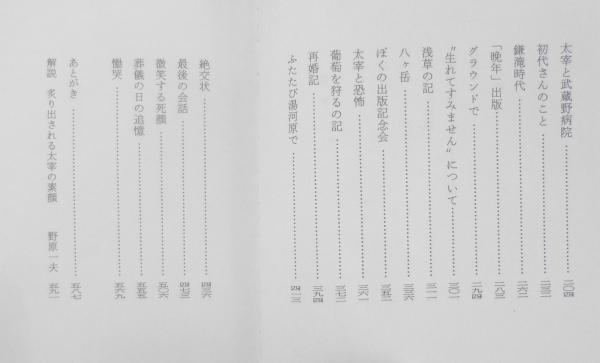 太宰と武蔵野病院 二〇四
初代さんのこと 二三二
鎌滝時代 二六二
「晩年」出版 二八三
グラウンドで 二九四
“生れてすみません”について 三〇一
浅草の記 三一一
八ヶ岳 三三六
ぼくの出版記念会 三五二
太宰と恐怖 三六一
葡萄を狩るの記 三七二
再婚記 三九四
ふたたび湯河原で 四一三
絶交状 四三六
最後の会話 四七三
微笑する死顔 五〇六
葬儀の日の追憶 五五五
慟哭 五六九
あとがき 五八七
解説 炙り出される太宰の素顔 野原一夫 五九一